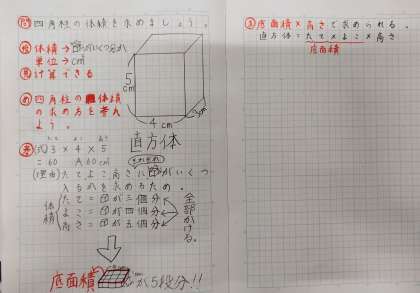 問 四角柱の体積を求めましょう。
体積→ がいくつ分か
単位→cm³
計算できる
め 四角柱の体積
の求め方を考え
よう。
5
cm
4 cm
3cm
直方体
(式) 3 × 4 × 5
= 60 A 60cm³
(理由) たてよこ高さに がいくつ
入るかを求めるため。
体積
たて = が三個分
よこ = が四個分
高さ = が五個分
全部かける。
底面積 が5段分!!
底面積×高さで求められる。
直方体=たて×よこ×高さ
底面積